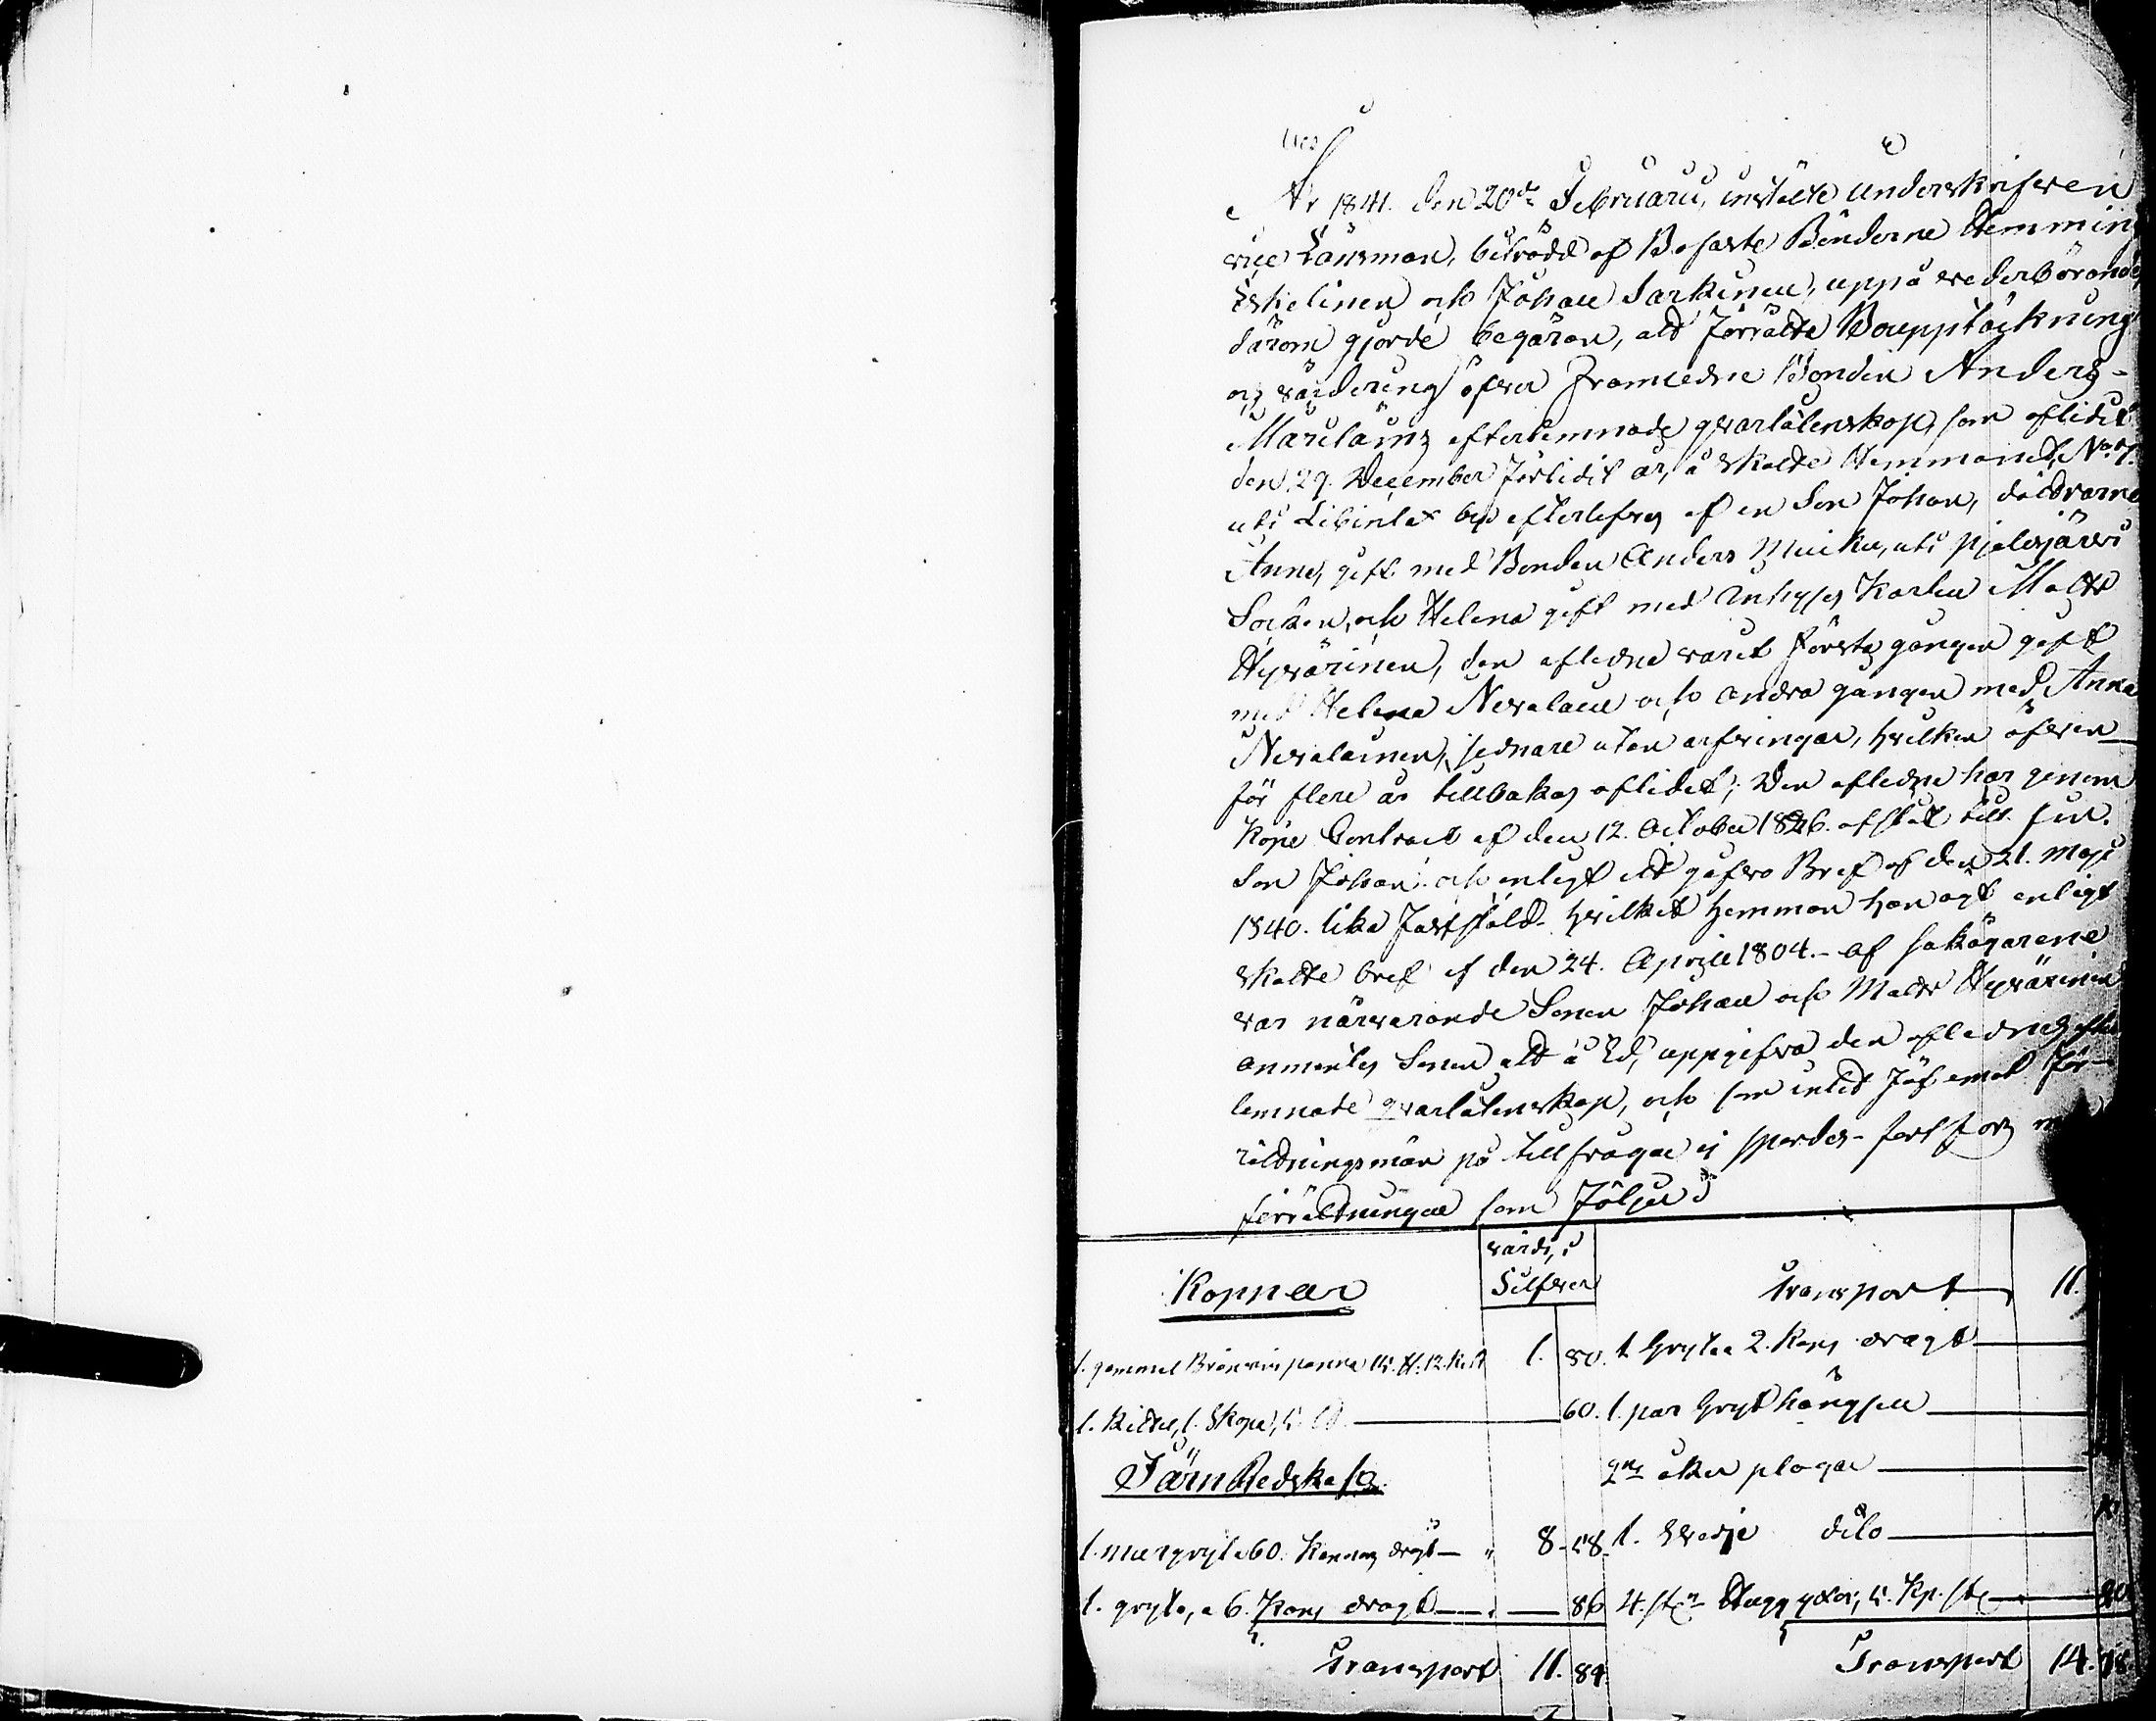 År 1841. den 20de Februarii, instälte underskrifven
vice Länsman, biträdd af Bofaste Bönderne Hemming
Eskelinen och Johan Sarkinen, uppå vederbörandes
därom gjorde begäran, att förrätta Bouppteckning
och värdering öfver framledne Bonden Anders
Marilainens efterlemnade qvarlåtenskap, som aflidit
den 29. December förlidit år, å Skatte Hemmanet No 7.
uti by efterlefves af en Son Johan, döttrarne
Anna, gift med Bonden Anders uti Pielisjärvi
Socken, och Helena gift med Inhyses Karlen Matts
Hyvärinen, den aflidne varit första gången gift
med Helena Nevalain och andra gången med Anna
Nevalainen, sednare utan arfvingar, hvilken äfven
för flere år tillbakas aflidit; Den aflidne har genom
Köpe Contract af den 12. October 1826. afstått till sin
Son Johan och enligt ett gåfvo Bref af den 21. Maji
1840. lika hvilket hemman han ägt enligt
Skatte bref af den 24. April 1804. - af sakägarene
var närvarande Sonen Johan och Matts Hyvärinen
anmantes Sonen att å Ed, uppgifva den aflidnes efter
lemnade qvarlåtenskap, och som intet jäf emot för-
rättningsmän på tillfrågan ej spordes - fortfors
förrättningen som följer
Koppar
värde, i
Silfver
Transport 11.
1. gammal Brännvins panna 12. 1. 80. 1 Gryta 2. Kans dragt
1. Kittel, 1. Skopa, 60. 1. par Gryt hängslen
Järn Redskap
2ne åker plogar
1. mur gryta 60. Kannors dragt 8 58. 1. Svedje dito
1. gryta, a 6. Kans dragt 86 4. st. Hugg yxor, 20
Transport 11. 84. Transport 14. 78.